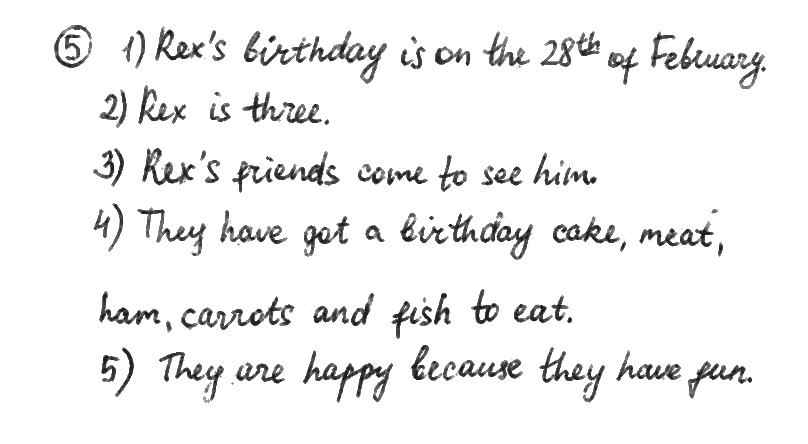 ⑤ 1) Rex's birthday is on the 28th of February.
2) Rex is three.
3) Rex's friends come to see him.
4) They have got a birthday cake, meat,
ham, carrots and fish to eat.
5) They are happy because they have fun.